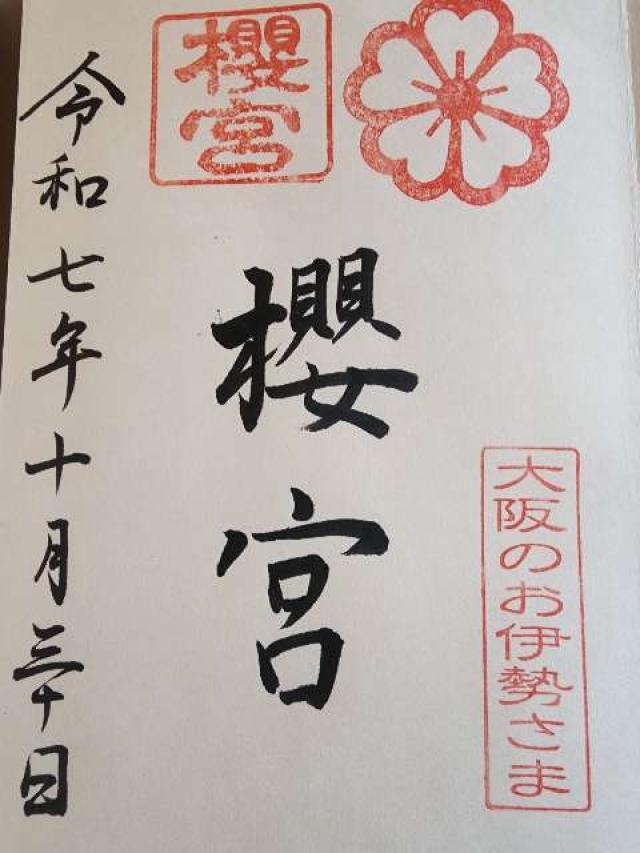 大阪のお伊勢さま
櫻宮
櫻宮
令和七年十月三十日